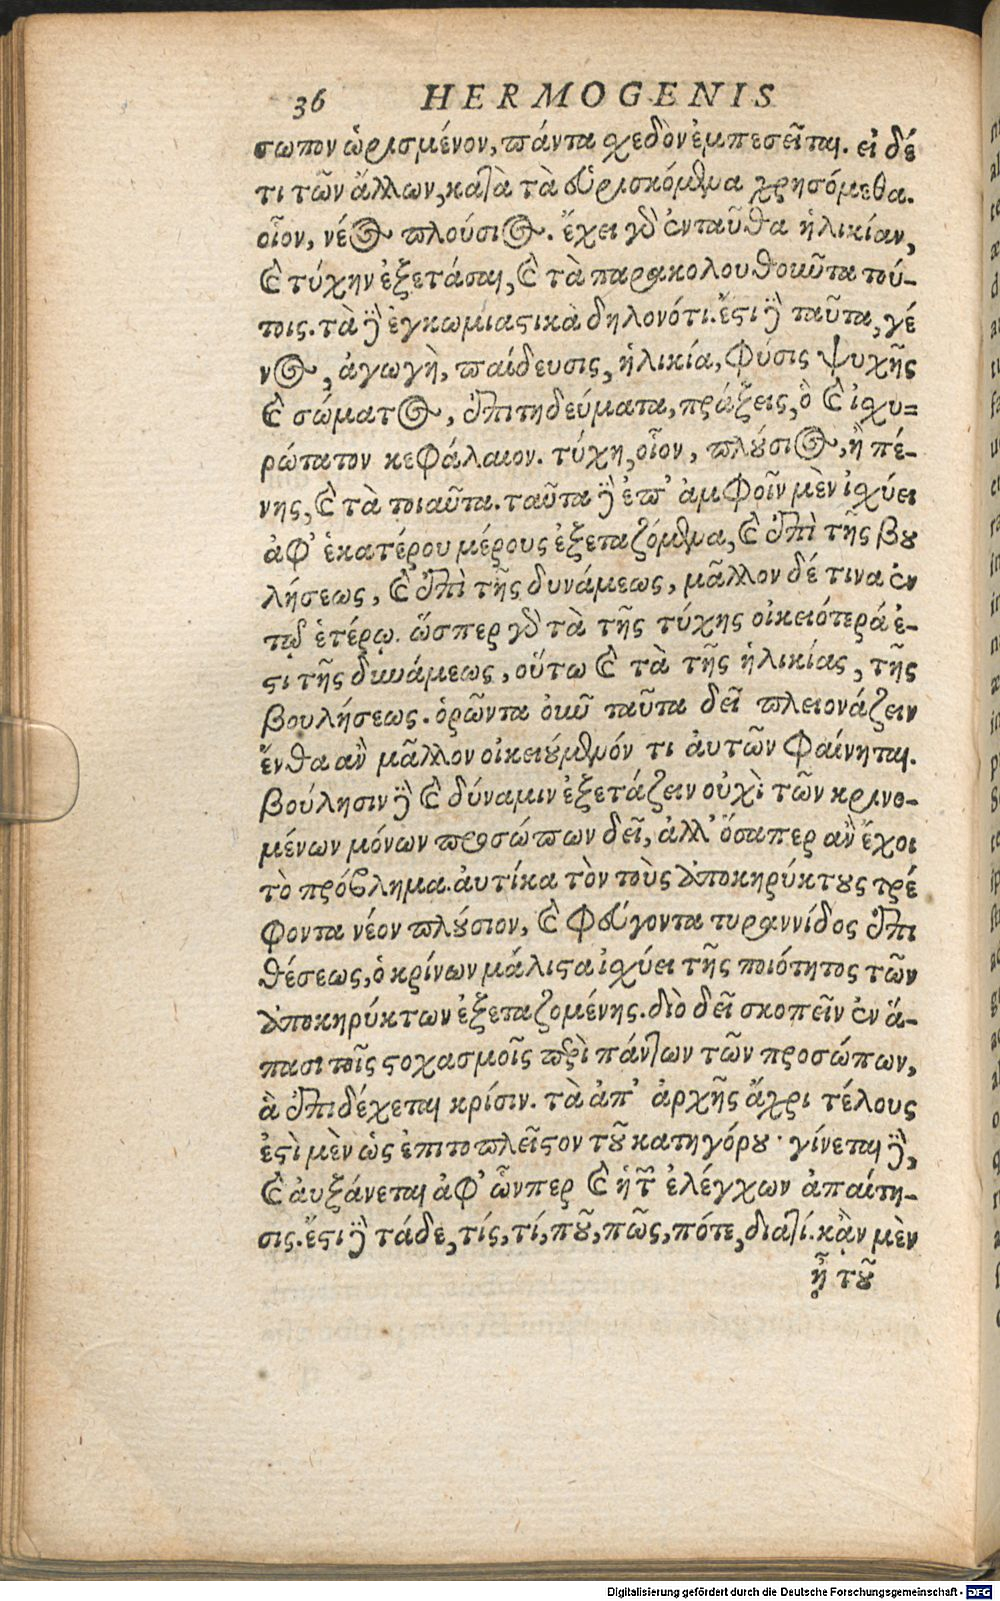 36 HERMOGENIS
σωπον ὡρισμένον, πάντα σχεδὸν ἐμπεσεῖται. εἰ δέ
τι τῶν ἄλλων, κατὰ τὰ εὑρισκόμενα χρησόμεθα.
οἷον, νέος πλούσιος. ἔχει γὰρ ἐνταῦθα ἡλικίαν,
καὶ τύχην ἐξετάσαι, καὶ τὰ παρακολουθοῦντα τού-
τοις. τὰ δὲ ἐγκωμιαστικὰ δηλονότι. ἔστι δὲ ταῦτα, γέ
νος, ἀγωγὴ, παίδευσις, ἡλικία, φύσις ψυχῆς
καὶ σώματος, ἐπιτηδεύματα, πράξεις, ὃ καὶ ἰσχυ-
ρώτατον κεφάλαιον. τύχη, οἷον, πλούσιος, ἢ πέ-
νης, καὶ τὰ τοιαῦτα. ταῦτα δὲ ἐπ' ἀμφοῖν μὲν ἰσχύει
ἀφ' ἑκατέρου μέρους ἐξεταζόμενα, καὶ ἐπὶ τῆς βου
λήσεως, καὶ ἐπὶ τῆς δυνάμεως, μᾶλλον δέ τινα ἐν
τῷ ἑτέρῳ. ὥσπερ γὰρ τὰ τῆς τύχης οἰκειότερά ἐ-
στι τῆς δυνάμεως, οὕτω καὶ τὰ τῆς ἡλικίας, τῆς
βουλήσεως. ὁρῶντα οὖν ταῦτα δεῖ πλειονάζειν
ἔνθα ἂν μᾶλλον οἰκειούμενόν τι αὐτῶν φαίνηται.
βούλησιν δὲ καὶ δύναμιν ἐξετάζειν οὐχὶ τῶν κρινο-
μένων μόνων προσώπων δεῖ, ἀλλ' ὅσαπερ ἂν ἔχοι
τὸ πρόβλημα. αὐτίκα τὸν τοὺς ἀποκηρύκτους τρέ
φοντα νέον πλούσιον, καὶ φεύγοντα τυραννίδος ἐπι
θέσεως, ὁ κρίνων μάλιστα ἰσχύει τῆς ποιότητος τῶν
ἀποκηρύκτων ἐξεταζομένης. διὸ δεῖ σκοπεῖν ἐν ἅ-
πασι τοῖς στοχασμοῖς περὶ πάντων τῶν προσώπων,
ἃ ἐπιδέχεται κρίσιν. τὰ ἀπ' ἀρχῆς ἄχρι τέλους
ἐστὶ μὲν ὡς ἐπιτοπλεῖστον τοῦ κατηγόρου· γίνεται δὲ,
καὶ αὐξάνεται ἀφ' ὧνπερ καὶ ἡ τῶν ἐλέγχων ἀπαίτη-
σις. ἔστι δὲ τάδε, τίς, τί, ποῦ, πῶς, πότε, διατί. κἂν μὲν
ᾖ τοῦ
Digitalisierung gefördert durch die Deutsche Forschungsgemeinschaft - DFG